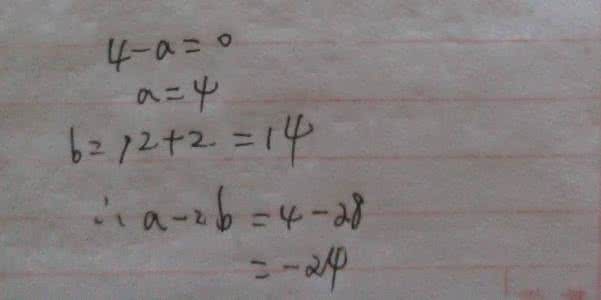 4-a=0
a=4
b=12+2=14
∴ a-2b=4-28
=-24